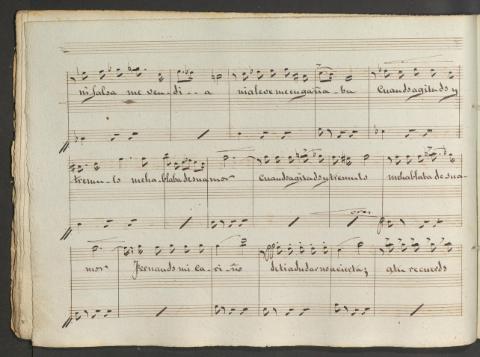 ni falsa me ven - di - - a ni aleve me engaña - ba Cuando agitado y
tremu - lo me ha - blaba de su amor Cuando agitado y tremulo me hablaba de su a -
mor Fernando mi ca - ri - ño de ti a dudar no acierta; a tu recuerdo